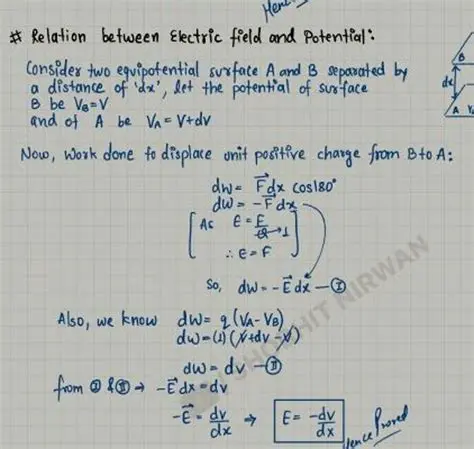 Hence
# Relation between Electric field and Potential:
Consider two equipotential surface A and B separated by
a distance of 'dx', let the potential of surface
B be V_B=V
and of A be V_A = V+dV
B
dx
A V
Now, Work done to displace unit positive charge from B to A:
dw = F⃗dx cos180°
dw = -F⃗dx
[As E = F/Q→1
∴ E = F]
So, dw = -E⃗dx —Ⓘ
Also, we know dw = q(V_A - V_B)
dw=(1)(V+dv-V)
dw = dv —Ⓘ︎Ⓘ
from Ⓘ & ⒾⒾ → -E⃗dx = dv
-E⃗ = dv/dx ⇒ E = -dv/dx
Hence Proved
SHOBHIT NIRWAN